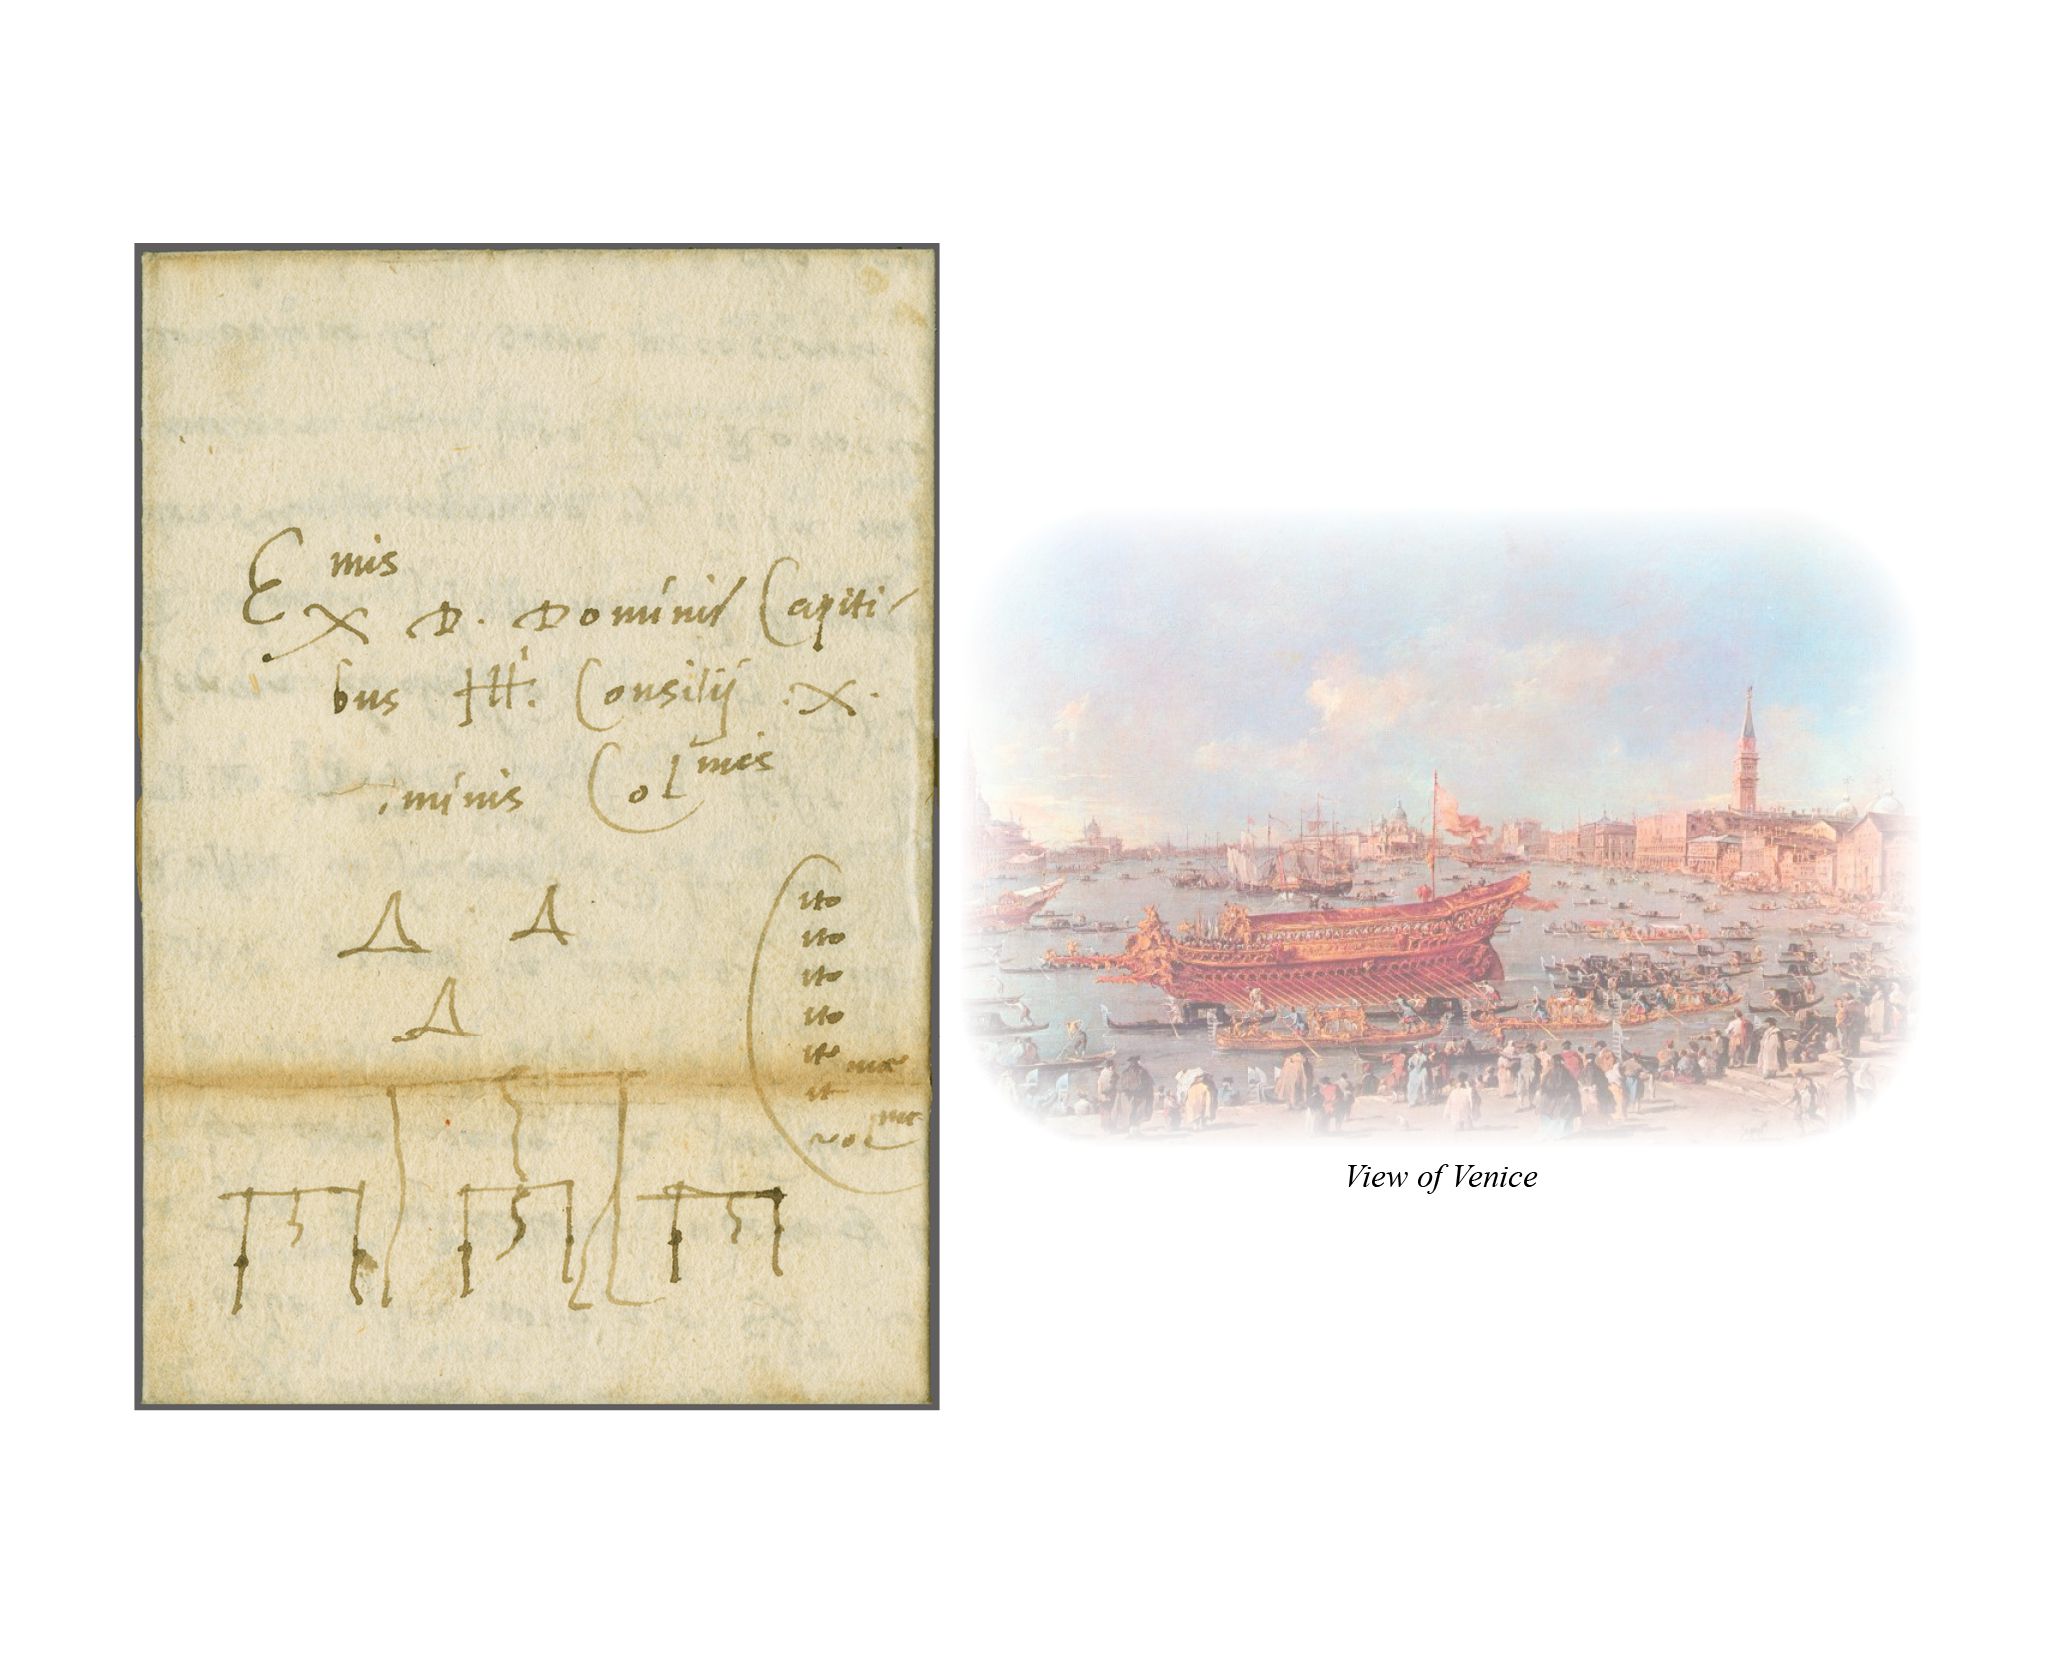 Ex.mis D. Dominis Capiti-
bus Ill.i Consilij .X.
Dominis Col.mis
ito
ito
ito
ito
ito
it
View of Venice